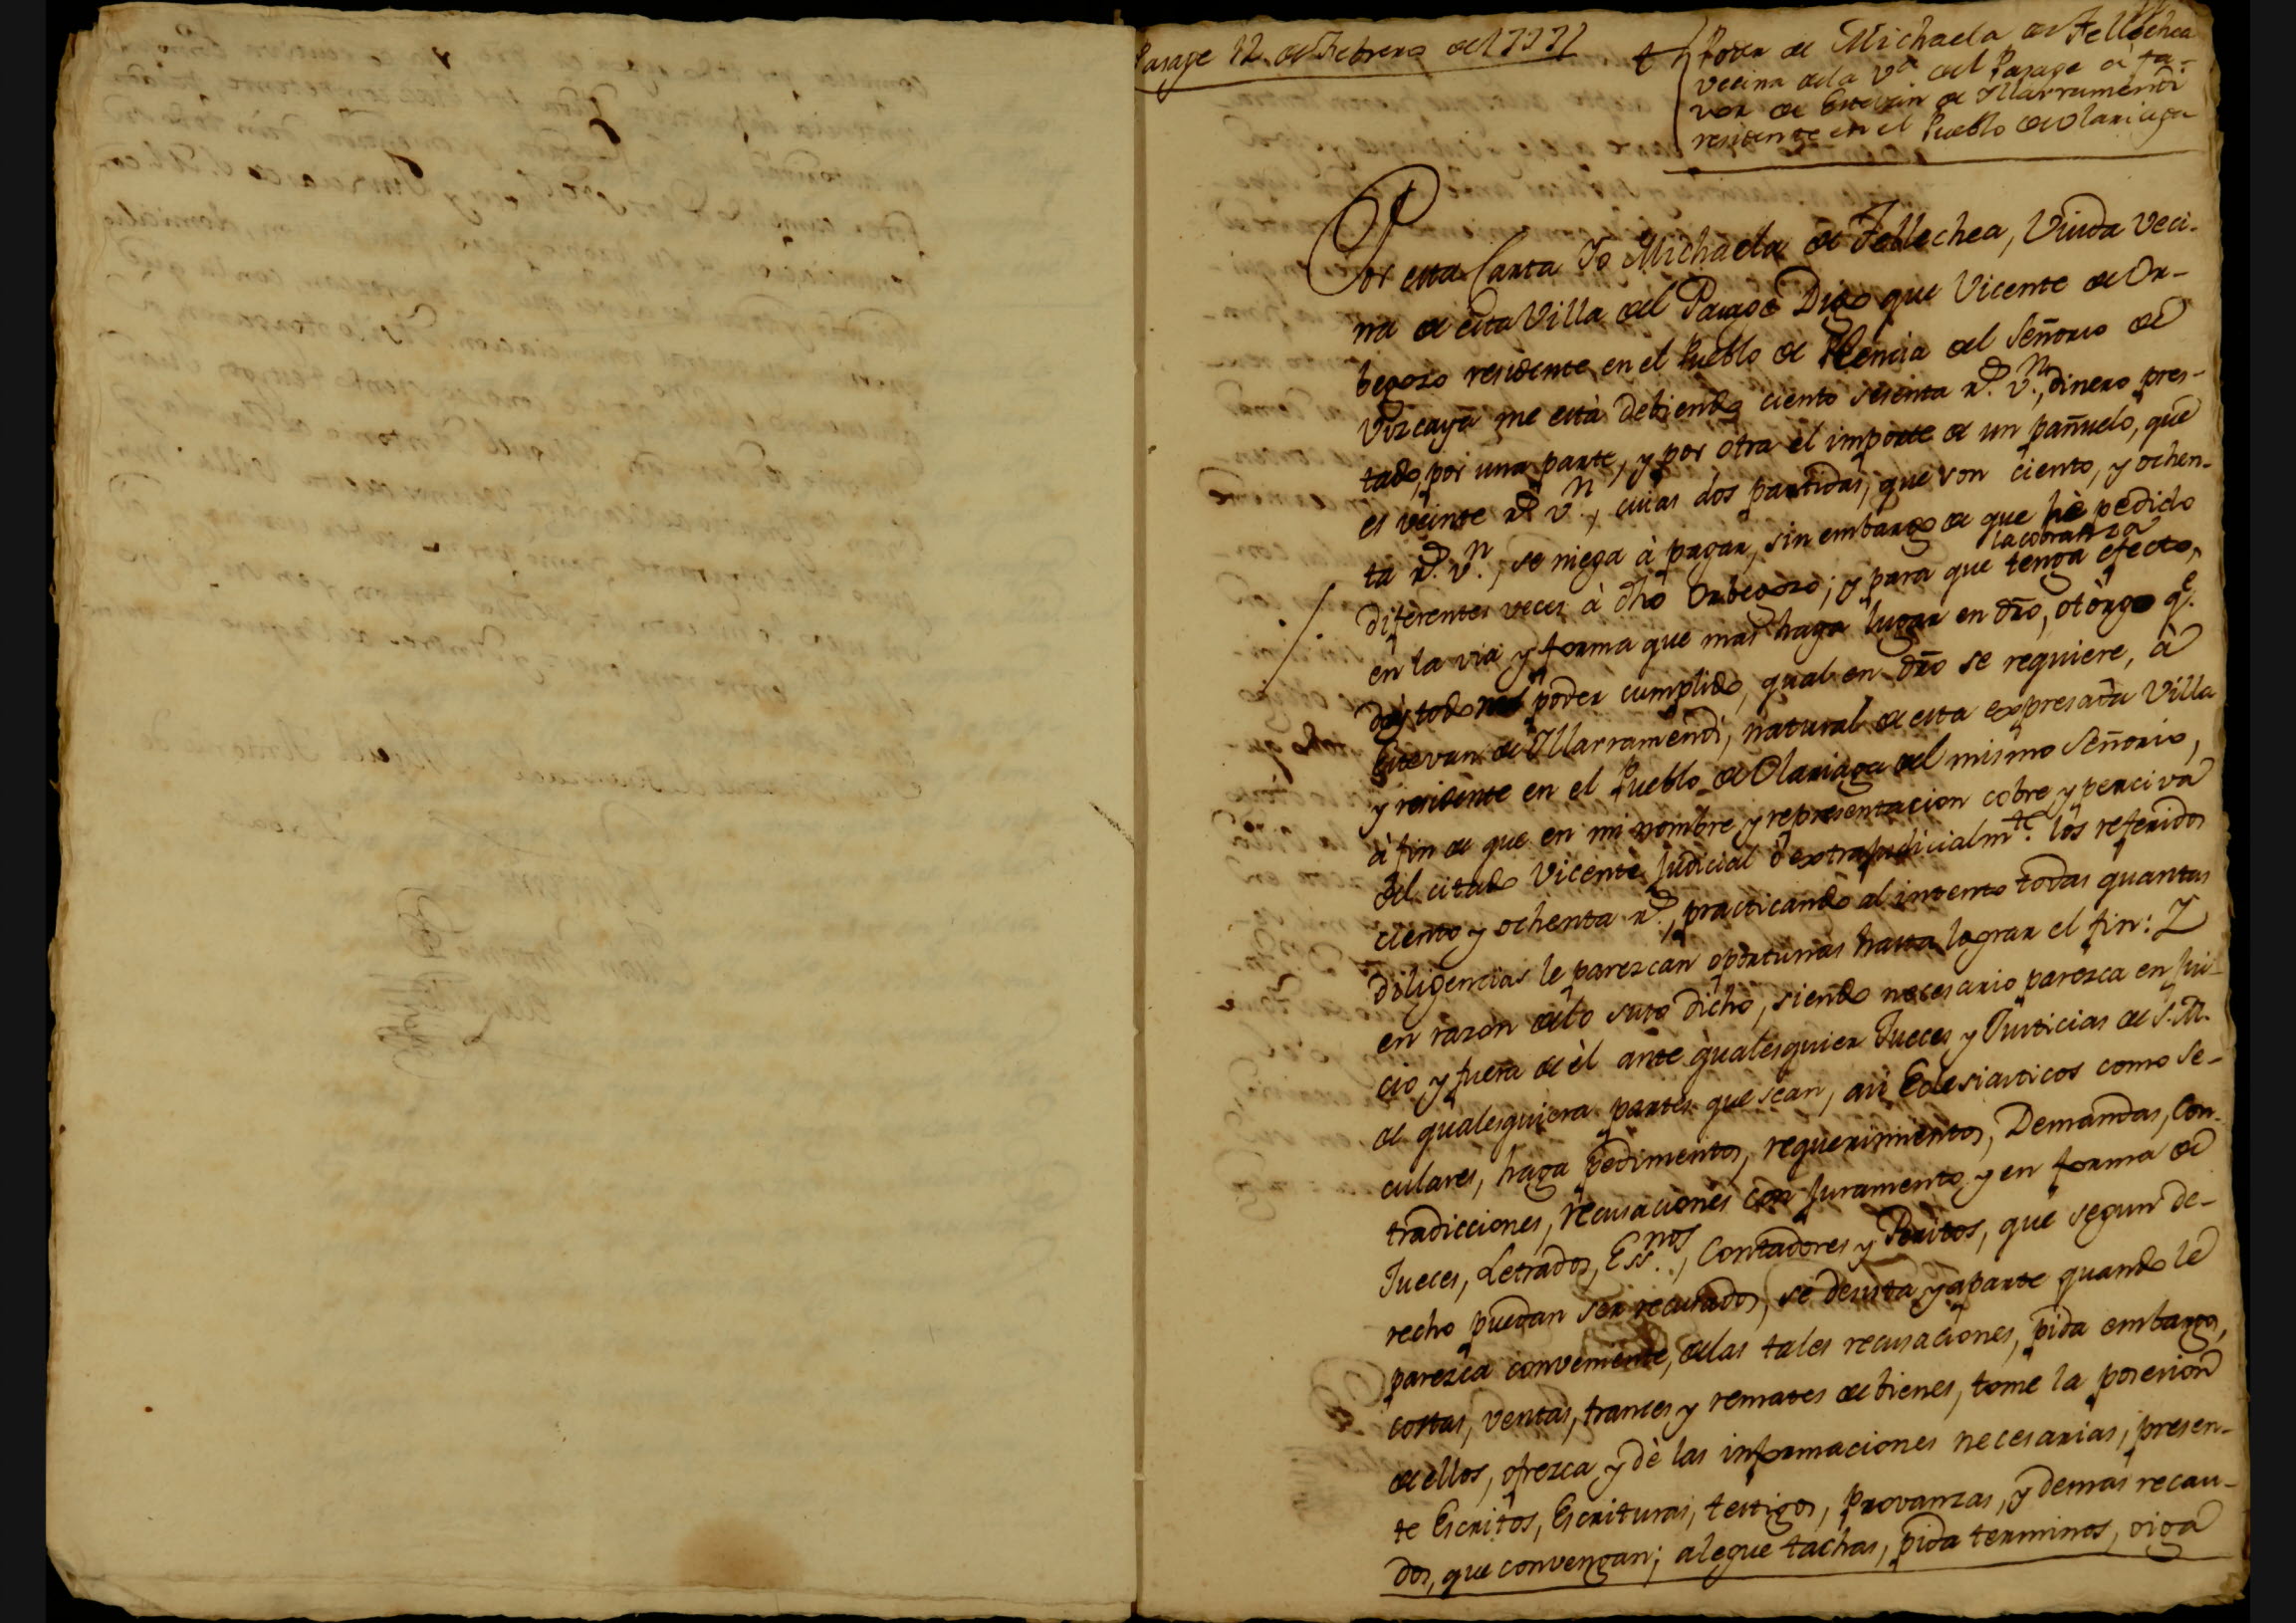 Pasage 12 de Febrero de 1771
Poder de Michaela de Fellechea
vecina dela Va. del Pasage à fa-
vor de Estevan de Yllarramendi
residente en el Pueblo de Olariaga
Por esta Carta Yo Michaela de Fellechea, Viuda Veci-
na de esta Villa del Pasage Digo que Vicente de Or-
begozo residente en el Pueblo de Plencia del Señorio de
Vizcaya me està debiendo ciento sesenta rs. vn., dinero pres-
tado, por una parte, y por otra el importe de un pañuelo, que
es veinte rs. vn., cuias dos partidas, que son ciento, y ochen-
ta rs. vn., se niega à pagar, sin embargo de que hè pedido
diferentes veces à dho Orbegozo; y para que la cobranza tenga efecto,
en la via y forma que mas haga lugar en dro, otorgo qe.
doy todo mi poder cumplido, qual en dro se requiere, à
Estevan de Yllarramendi, natural de esta expresada Villa
y residente en el Pueblo de Olariaga del mismo Señorio,
à fin de que en mi nombre, y representacion cobre, y perciva
del citado Vicente Judicial ò extrajudicialmte. los referidos
ciento y ochenta rs., practicando al intento todas quantas
diligencias le parezcan oportunas hasta lograr el fin: Y
en razon delo suso dicho, siendo necesario parezca en Jui-
cio y fuera de èl ante qualesquier Jueces y Justicias de S.M.
de qualesquiera partes que sean, asi Eclesiasticos como Se-
culares, haga pedimentos, requerimientos, Demandas, Con-
tradicciones, recusaciones con Juramento y en forma de
Jueces, Letrados, Essnos., Contadores y Peritos, que segun de-
recho puedan ser recusados, se desista y aparte quando le
paresca conveniente, delas tales recusaciones, pida embargos,
costas, ventas, trances y remates de bienes, tome la posesion
de ellos, ofrezca y dè las informaciones necesarias, presen-
te Escritos, Escrituras, testigos, provanzas, y demas recau-
dos, que convengan; alegue tachas, pida terminos, oiga